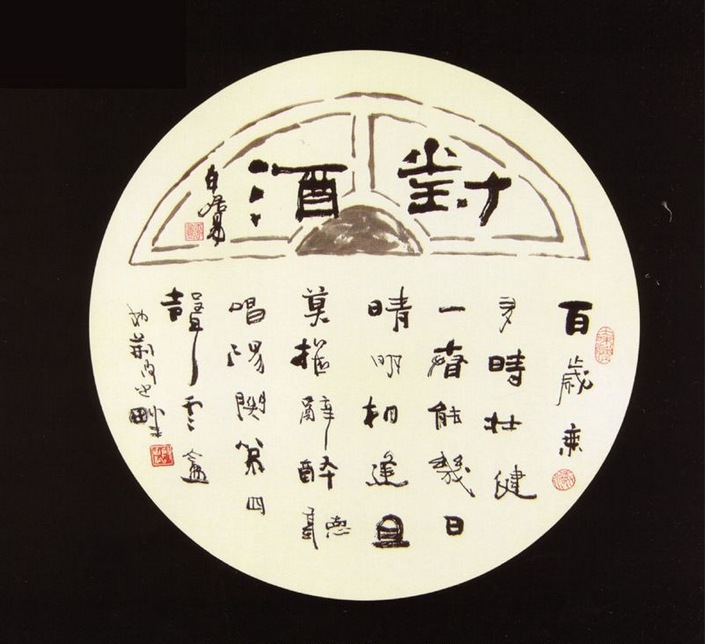 對酒
白居易
百歲無
多時壯健
一春能幾日
晴明相逢且
莫推辭醉聽
唱陽關第四
聲 雲盦